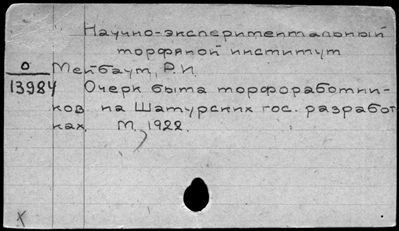 Научно-экспериментальный
торфяной институт
О
13984
Мейбаум, Р.И.
Очерк быта торфоработни-
ков на Шатурских гос. разработ
ках. М., 1922.
X